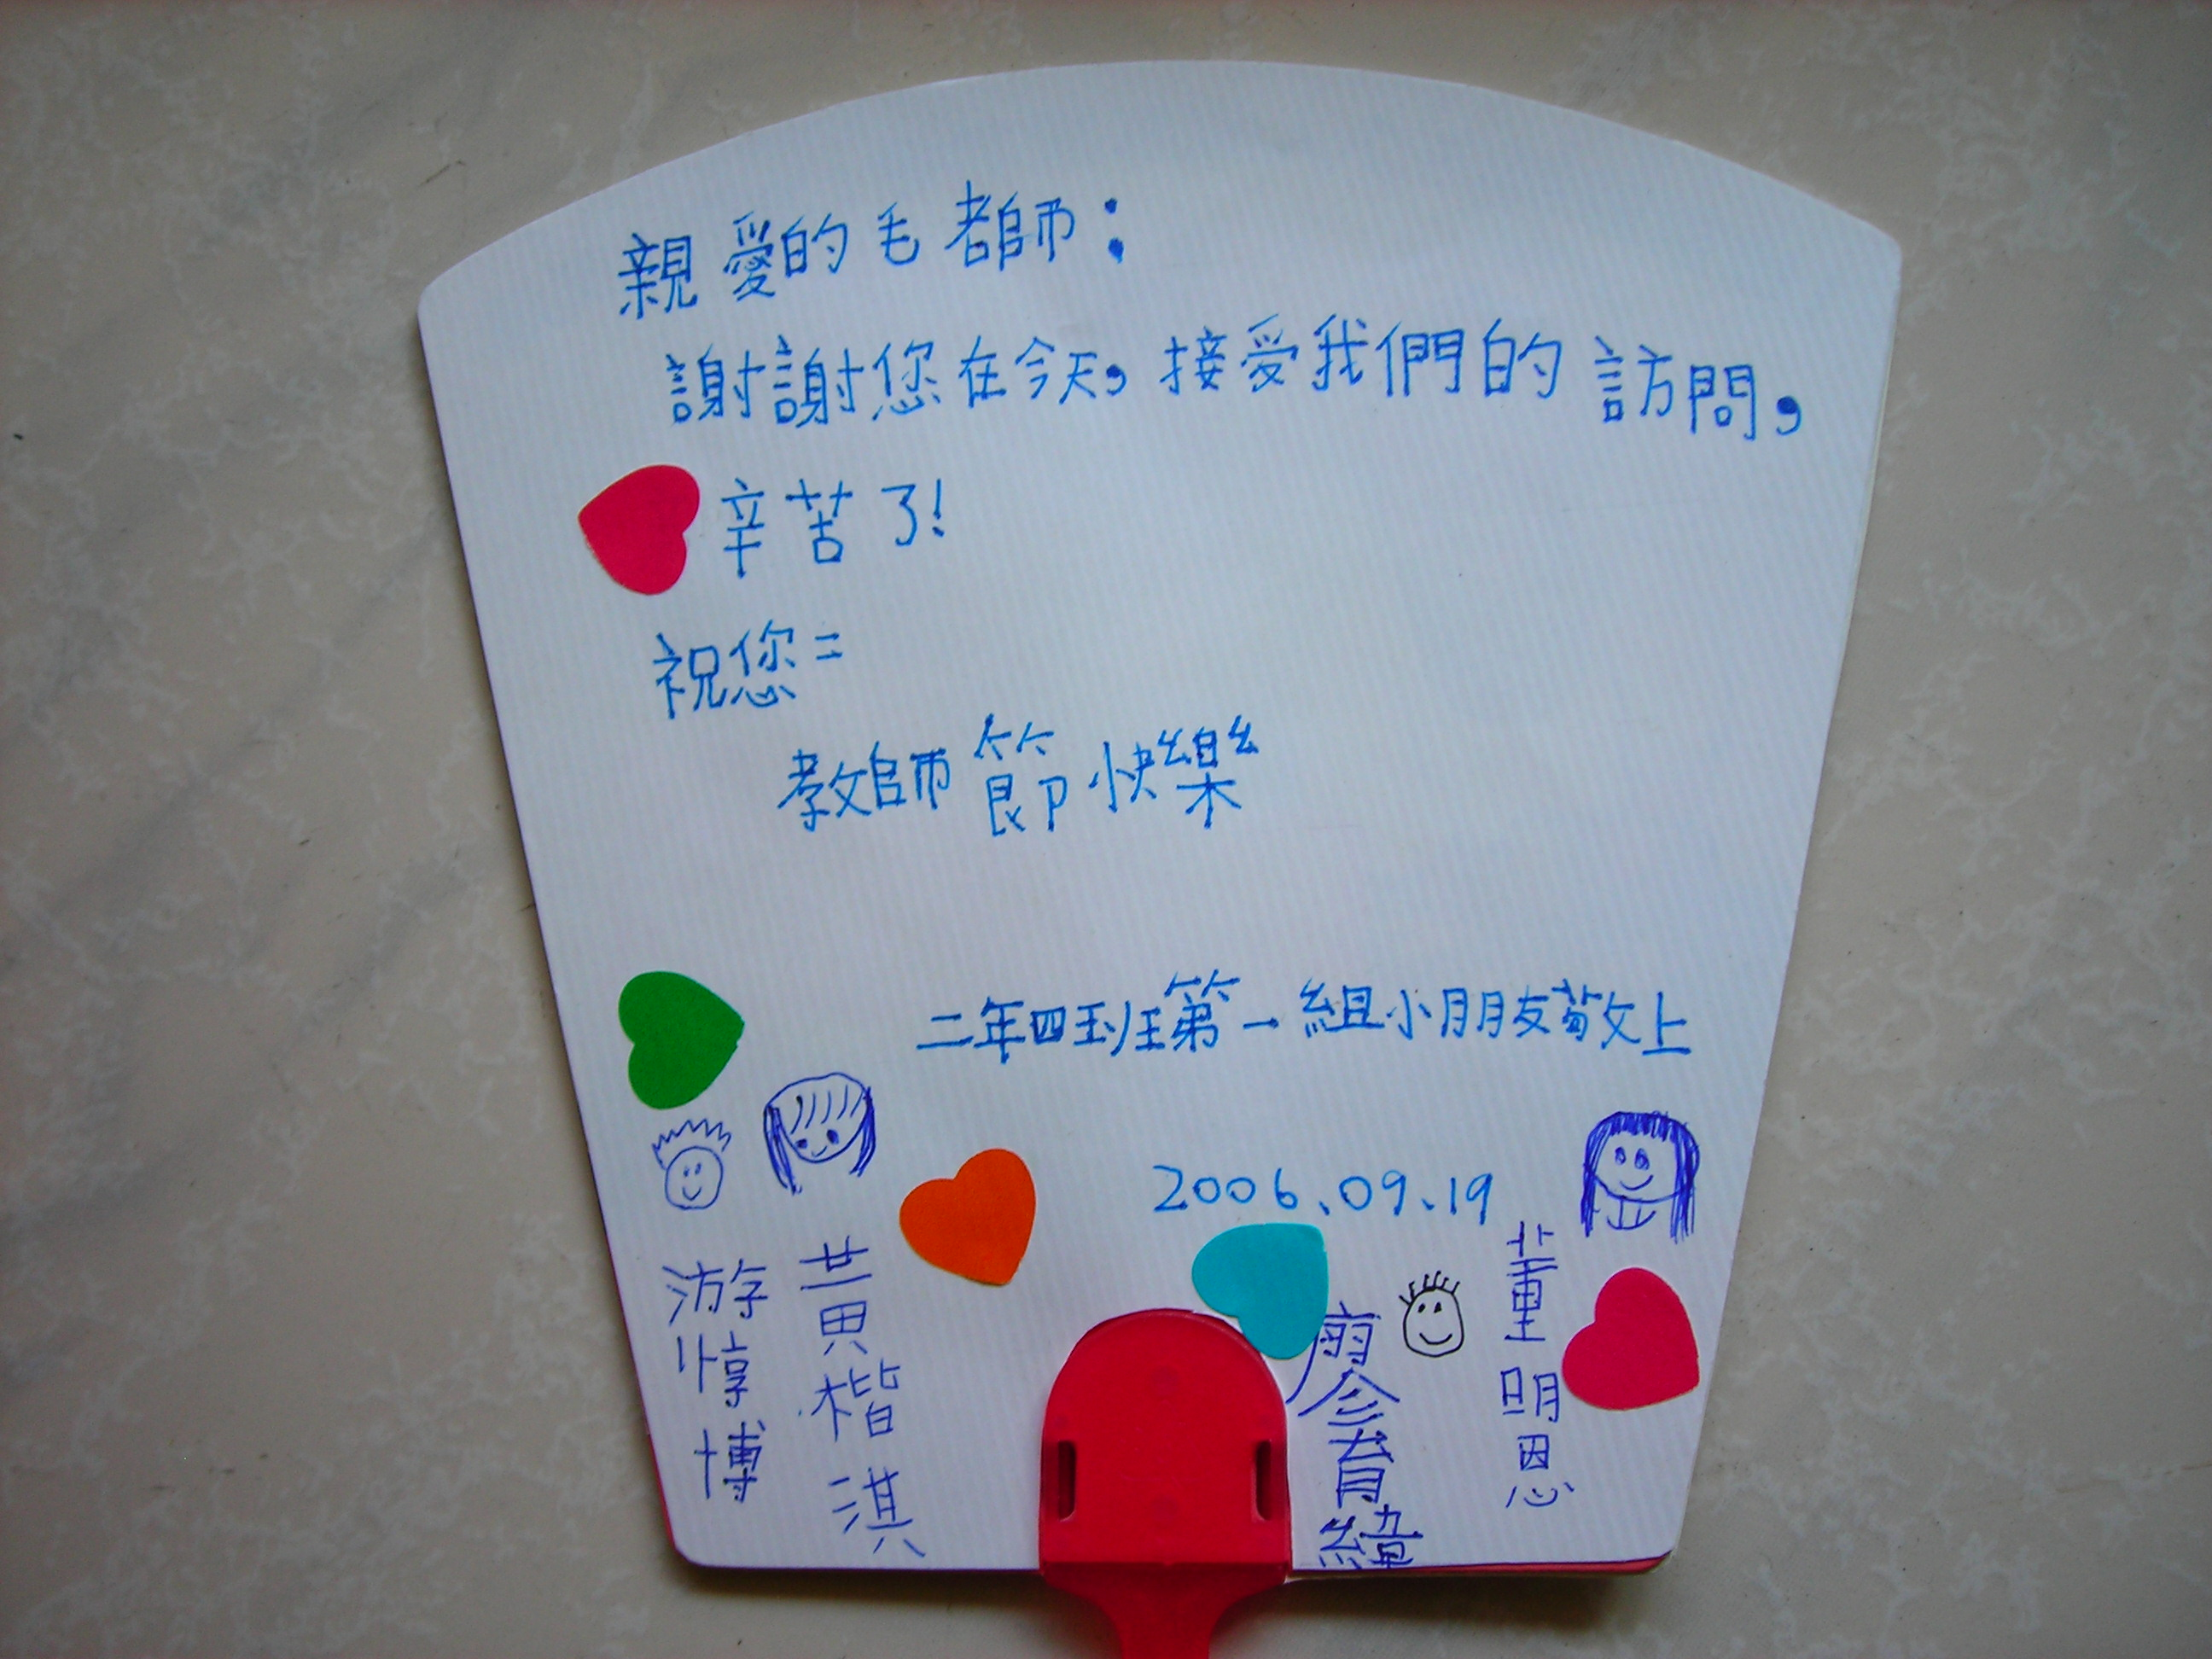 親愛的毛老師：
謝謝您在今天，接受我們的訪問，
辛苦了!
祝您：
教師節快樂
二年四班第一組小朋友敬上
2006.09.19
游惇博
黃楷淇
廖育緯
董明恩